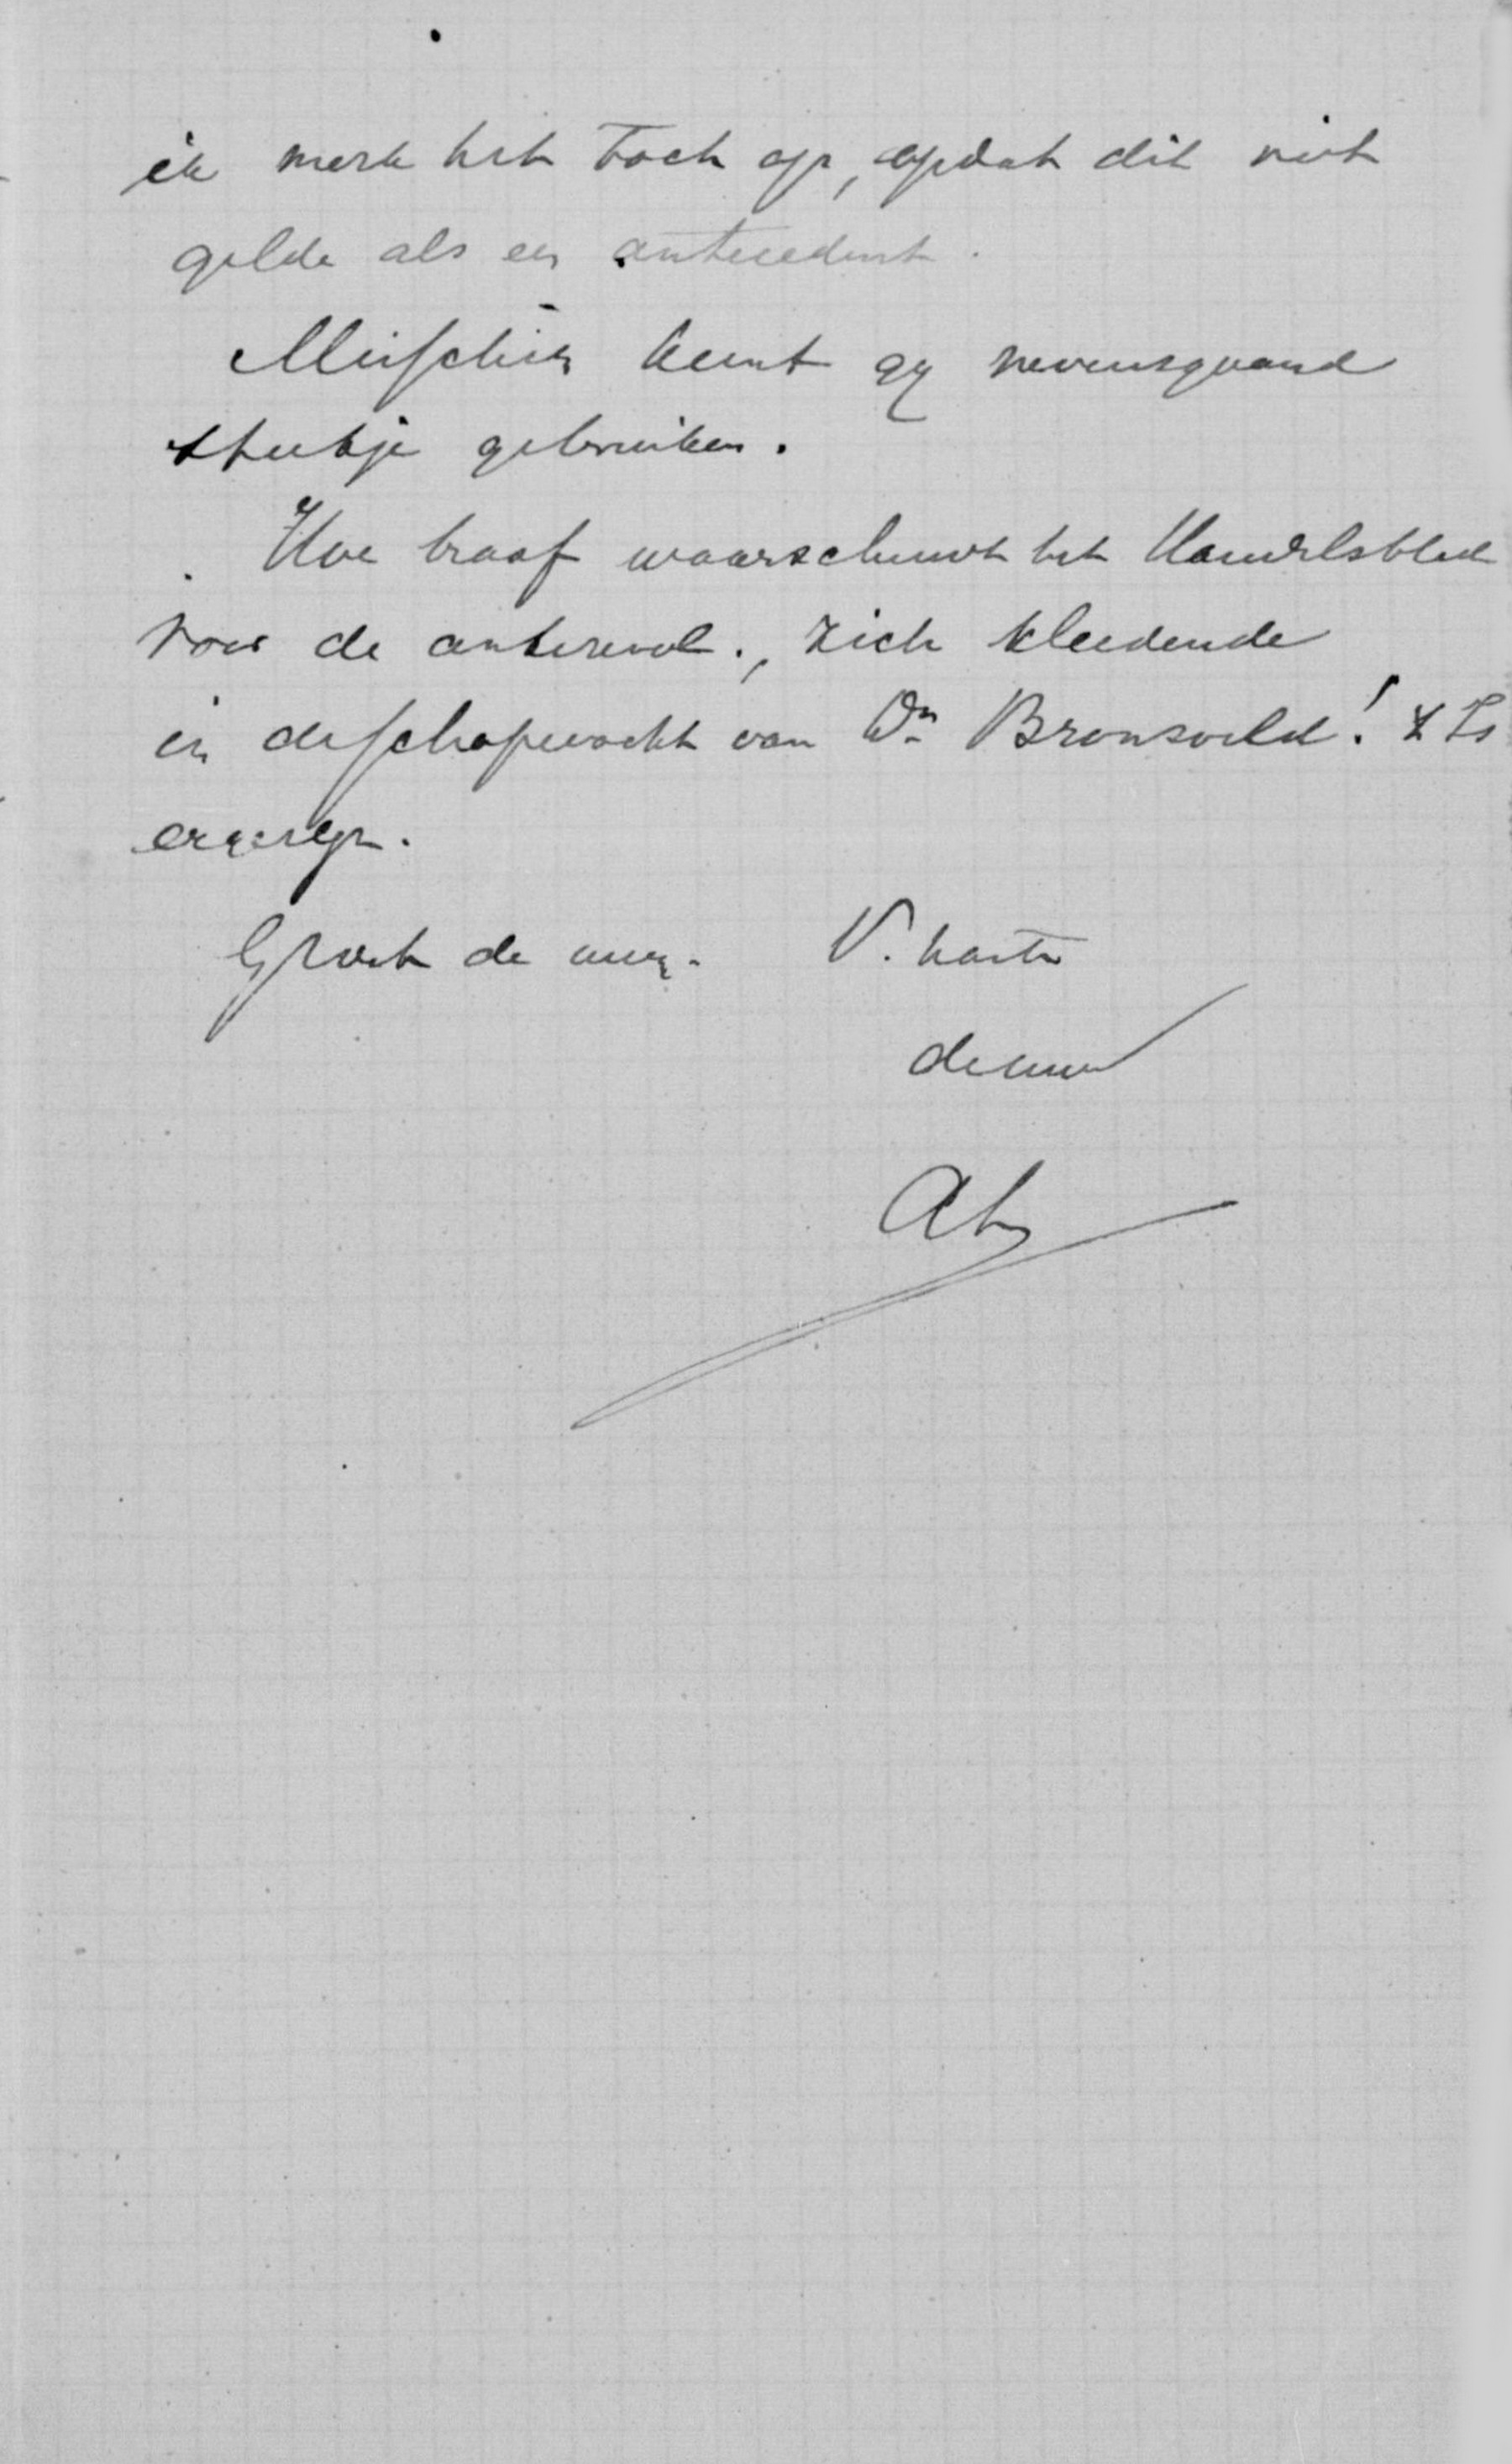 ik merk het toch op, opdat dit niet
gelde als een antecedent.
Misschien kunt gij nevensgaand
stukje gebruiken.
Hoe braaf waarschuwt het Handelsblad
voor de antirevol., zich kleedende
in de schapevacht van Dr Bronsveld! 't Is
ergerlijk.
Groet de uwen. V. harte
de uwe